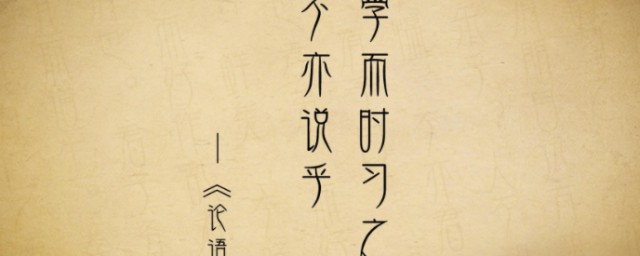 学而时习之
不亦说乎
—《论语